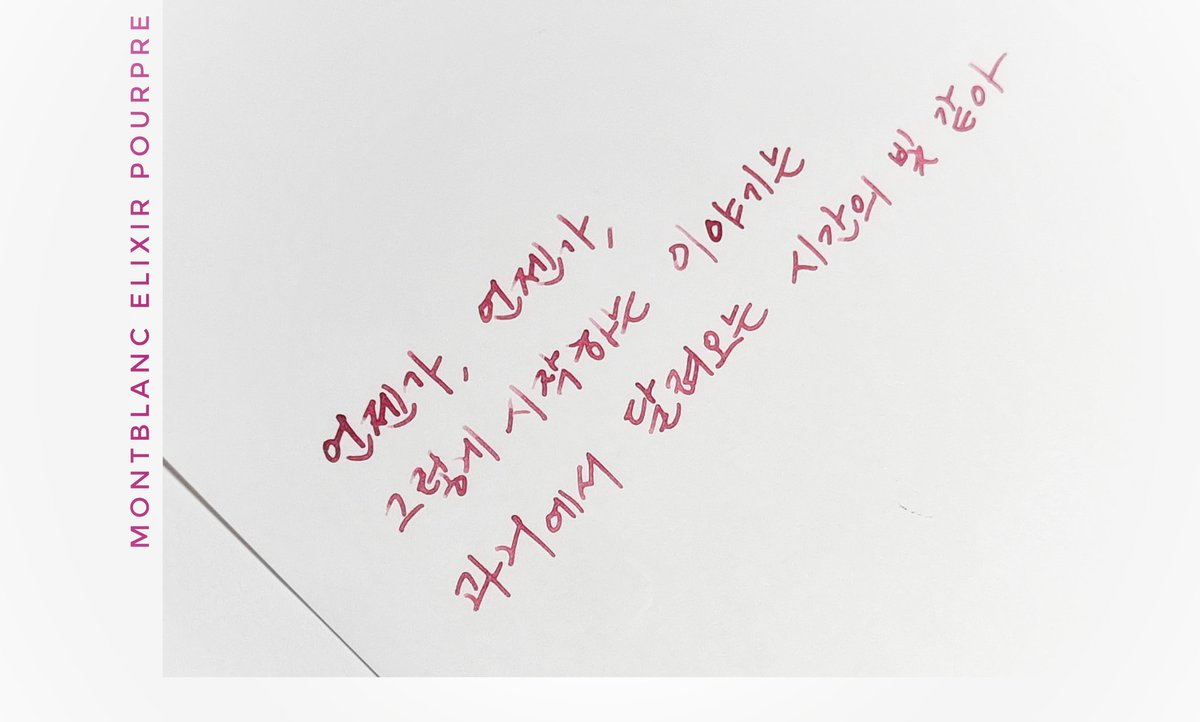 MONTBLANC ELIXIR POURPRE
언젠가, 언젠가,
그렇게 시작하는 이야기는
과거에서 달려오는 시간의 빛 같아